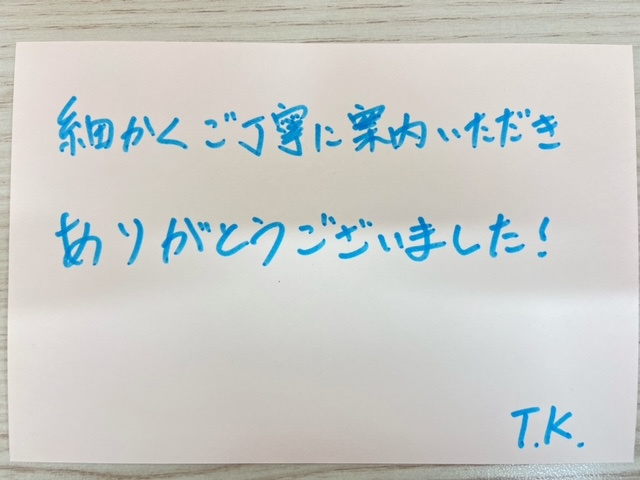 細かくご丁寧に案内いただき
ありがとうございました!
T.K.